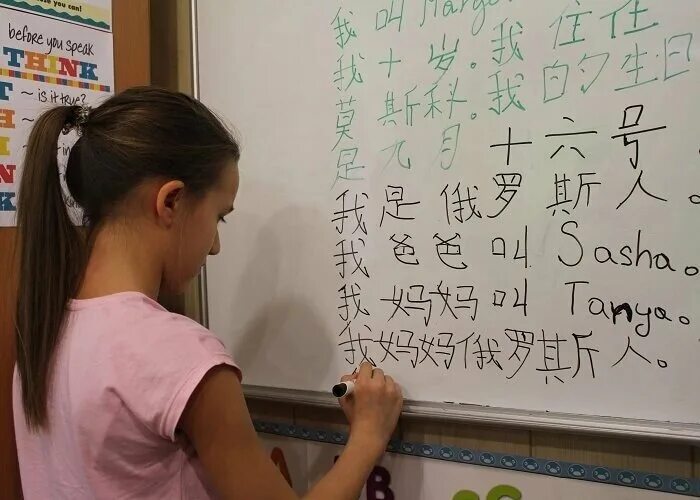 lose you can!
before you speak
THINK
T ~ is it true?
H
I
N
我 叫
我 十 岁。我 住 在
莫 斯 科。我 的 生 日
是 九 月 十 六 号
我 是 俄 罗 斯 人。
我 爸 爸 叫 Sasha。
我 妈妈 叫 Tanya。
我妈妈俄罗斯人。